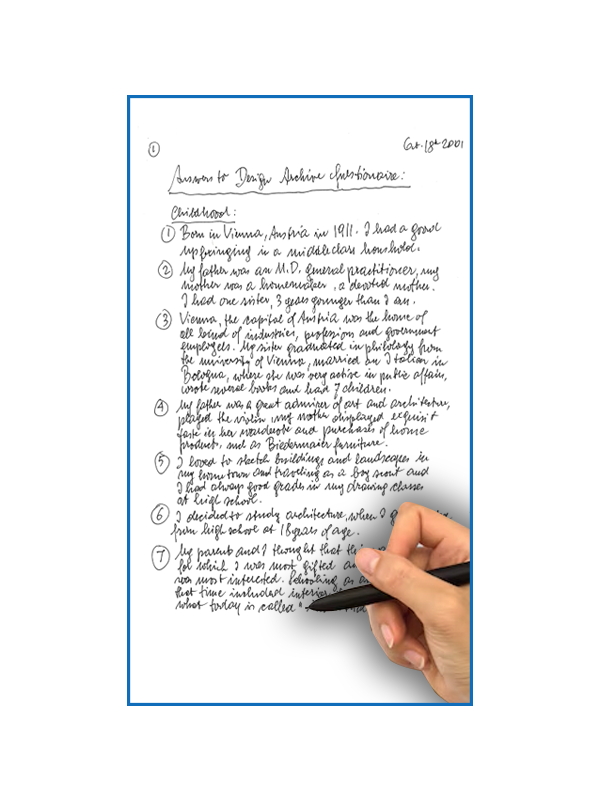 1
Oct. 18th 2001
Answers to Design Archive Questionaire:
Childhood:
1 Born in Vienna, Austria in 1911. I had a good
upbringing in a middleclass houshold.
2 My father was an M.D. general practitioner, my
mother was a homemaker, a devoted mother.
I had one sister, 3 years younger than I am.
3 Vienna, the capital of Austria was the home of
all kind of industries, professions and government
employees. My sister graduated in philology from
the university of Vienna, married an Italian in
Bologna, where she was very active in public affairs,
wrote several books and had 7 children.
4 My father was a great admirer of art and architecture,
played the violin, my mother displayed exquisit
taste in her wardrobe and purchases of home
products, such as Biedermaier furniture.
5 I loved to sketch buildings and landscapes in
my hometown and traveling as a boy scout and
I had always good grades in my drawing classes
at high school.
6 I decided to study architecture, when I
from high school at 18 years of age.
7 My parents and I thought that
for which I was most gifted
was most interested. Schooling as
that time included
what today is called "